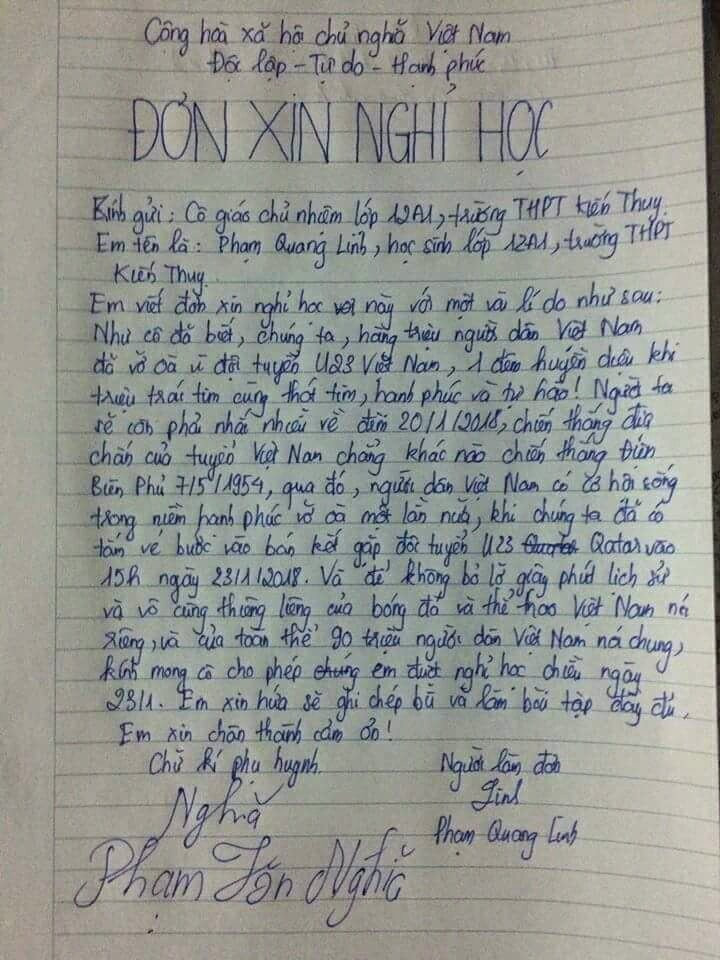 Cộng hòa xã hội chủ nghĩa Việt Nam
Độc lập - Tự do - Hạnh phúc
ĐƠN XIN NGHỈ HỌC
Kính gửi: Cô giáo chủ nhiệm lớp 12A1, trường THPT Kiến Thụy.
Em tên là: Phạm Quang Linh, học sinh lớp 12A1, trường THPT
Kiến Thụy.
Em viết đơn xin nghỉ học này với một vài lí do như sau:
Như cô đã biết, chúng ta, hàng triệu người dân Việt Nam
đã vỡ òa vì đội tuyển U23 Việt Nam, 1 đêm huyền diệu khi
triệu trái tim cùng thót tim, hạnh phúc và tự hào! Người ta
sẽ còn phải nhắc nhiều về đêm 20/1/2018, chiến thắng địa
chấn của tuyển Việt Nam chẳng khác nào chiến thắng Điện
Biên Phủ 7/5/1954, qua đó, người dân Việt Nam có cơ hội sống
trong niềm hạnh phúc vỡ òa một lần nữa, khi chúng ta đã có
tấm vé bước vào bán kết gặp đội tuyển U23 Qatar vào
15h ngày 23/1/2018. Và để không bỏ lỡ giây phút lịch sử
và vô cùng thiêng liêng của bóng đá và thể thao Việt Nam nói
riêng, và của toàn thể 90 triệu người dân Việt Nam nói chung,
kính mong cô cho phép chúng em được nghỉ học chiều ngày
23/1. Em xin hứa sẽ ghi chép bù và làm bài tập đầy đủ.
Em xin chân thành cảm ơn!
Chữ kí phụ huynh. Người làm đơn
Nghĩa Linh
Phạm Tấn Nghĩa Phạm Quang Linh